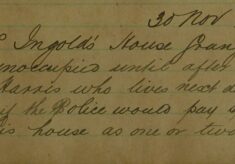 30 Nov
Ingold's House Gran
noccupied until after
Harris who lives next d
if the Police would pay s
is house as one or two